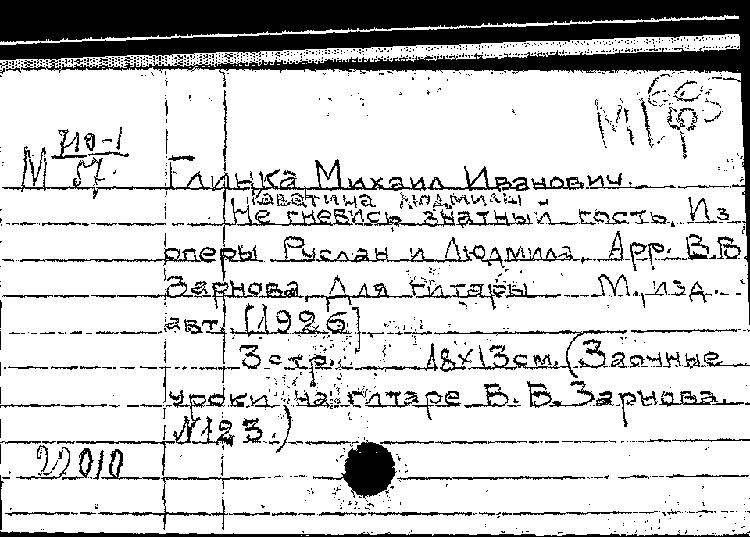 М 710-1/57.
Глинка Михаил Иванович.
Каватина Людмилы
"Не гневись знатный гость. Из
оперы Руслан и Людмила. Арр. В.В.
Зарнова. Для гитары М., изд.
авт. [1926]
3 стр. 18×13см. (Заочные
уроки на гитаре В. В. Зарнова.
№123.)
22010